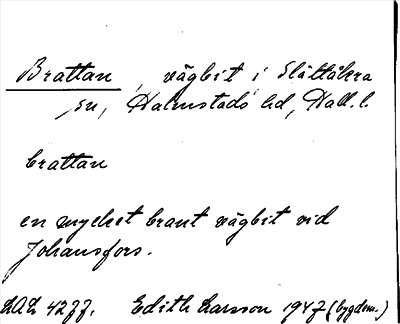 Brattan, vägbit i Slättåkra
sn, Halmstads hd, Hall. l.
brattan
en mycket brant vägbit vid
Johansfors.
LAL 4277. Edith Larsson 1947 (bygdem.)